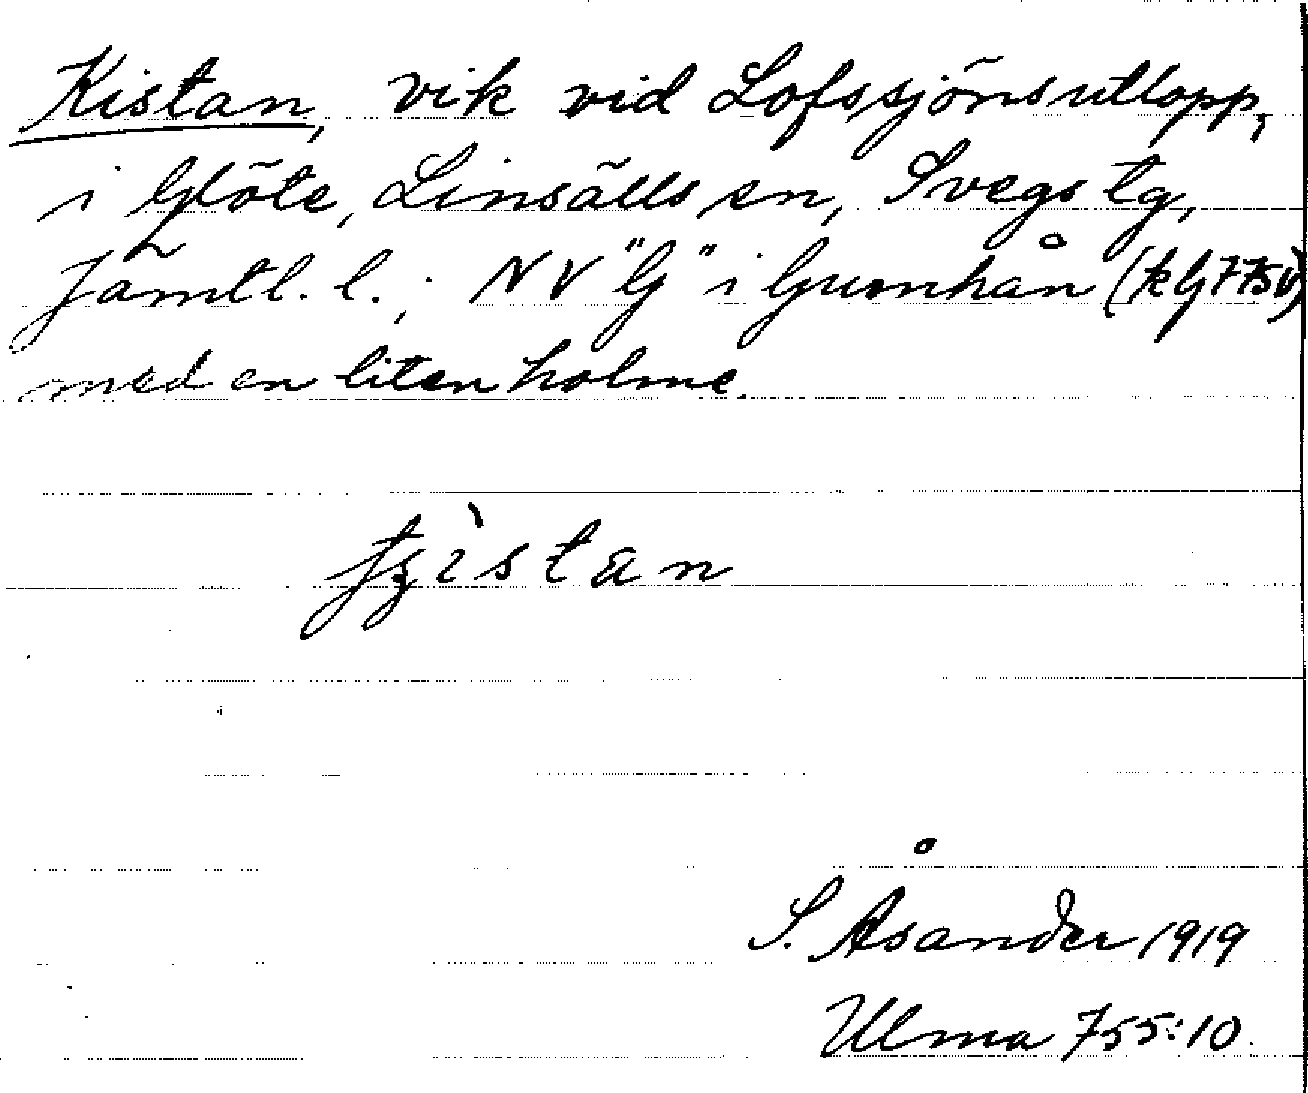 Kistan, vik vid Lofssjöns utlopp,
i Glöte, Linsälls sn, Svegs tg,
Jämtl. l.; NV "G" i Gumhån (k G775V)
med en liten holme.
istan
S. Åsander 1919
Ulma 755:10.